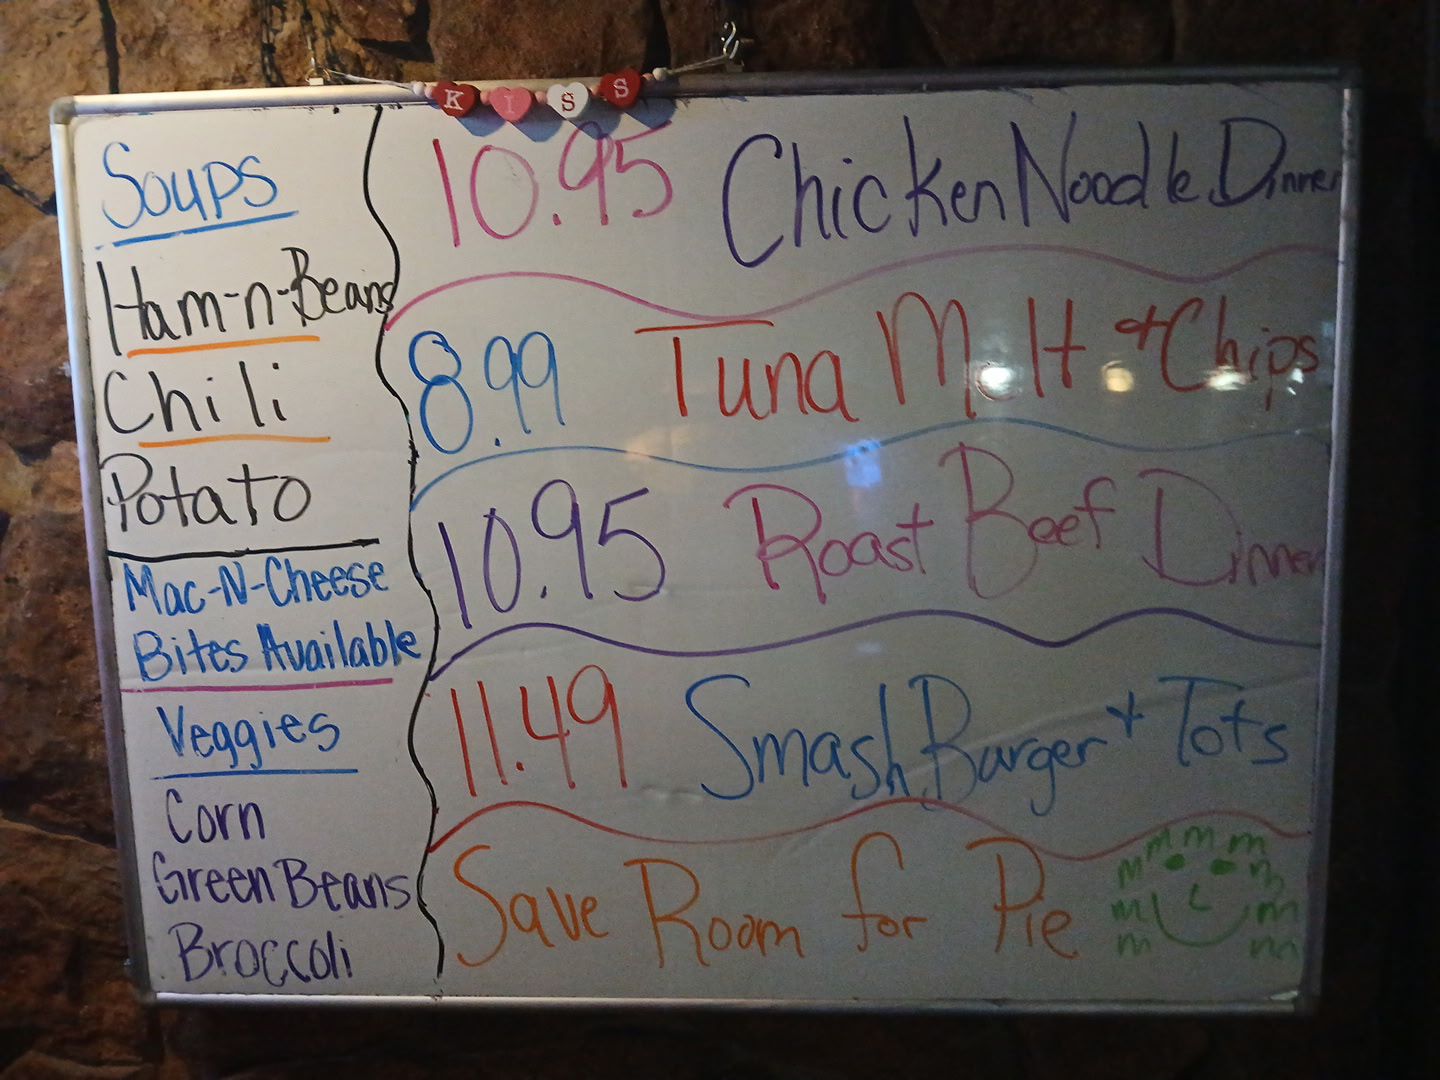 KISS
Soups
Ham-n-Beans
Chili
Potato
Mac-N-Cheese
Bites Available
Veggies
Corn
Green Beans
Broccoli
10.95 Chicken Noodle Dinner
8.99 Tuna Melt + Chips
10.95 Roast Beef Dinner
11.49 Smash Burger + Tots
Save Room for Pie
m m m m
m m
m m
m m